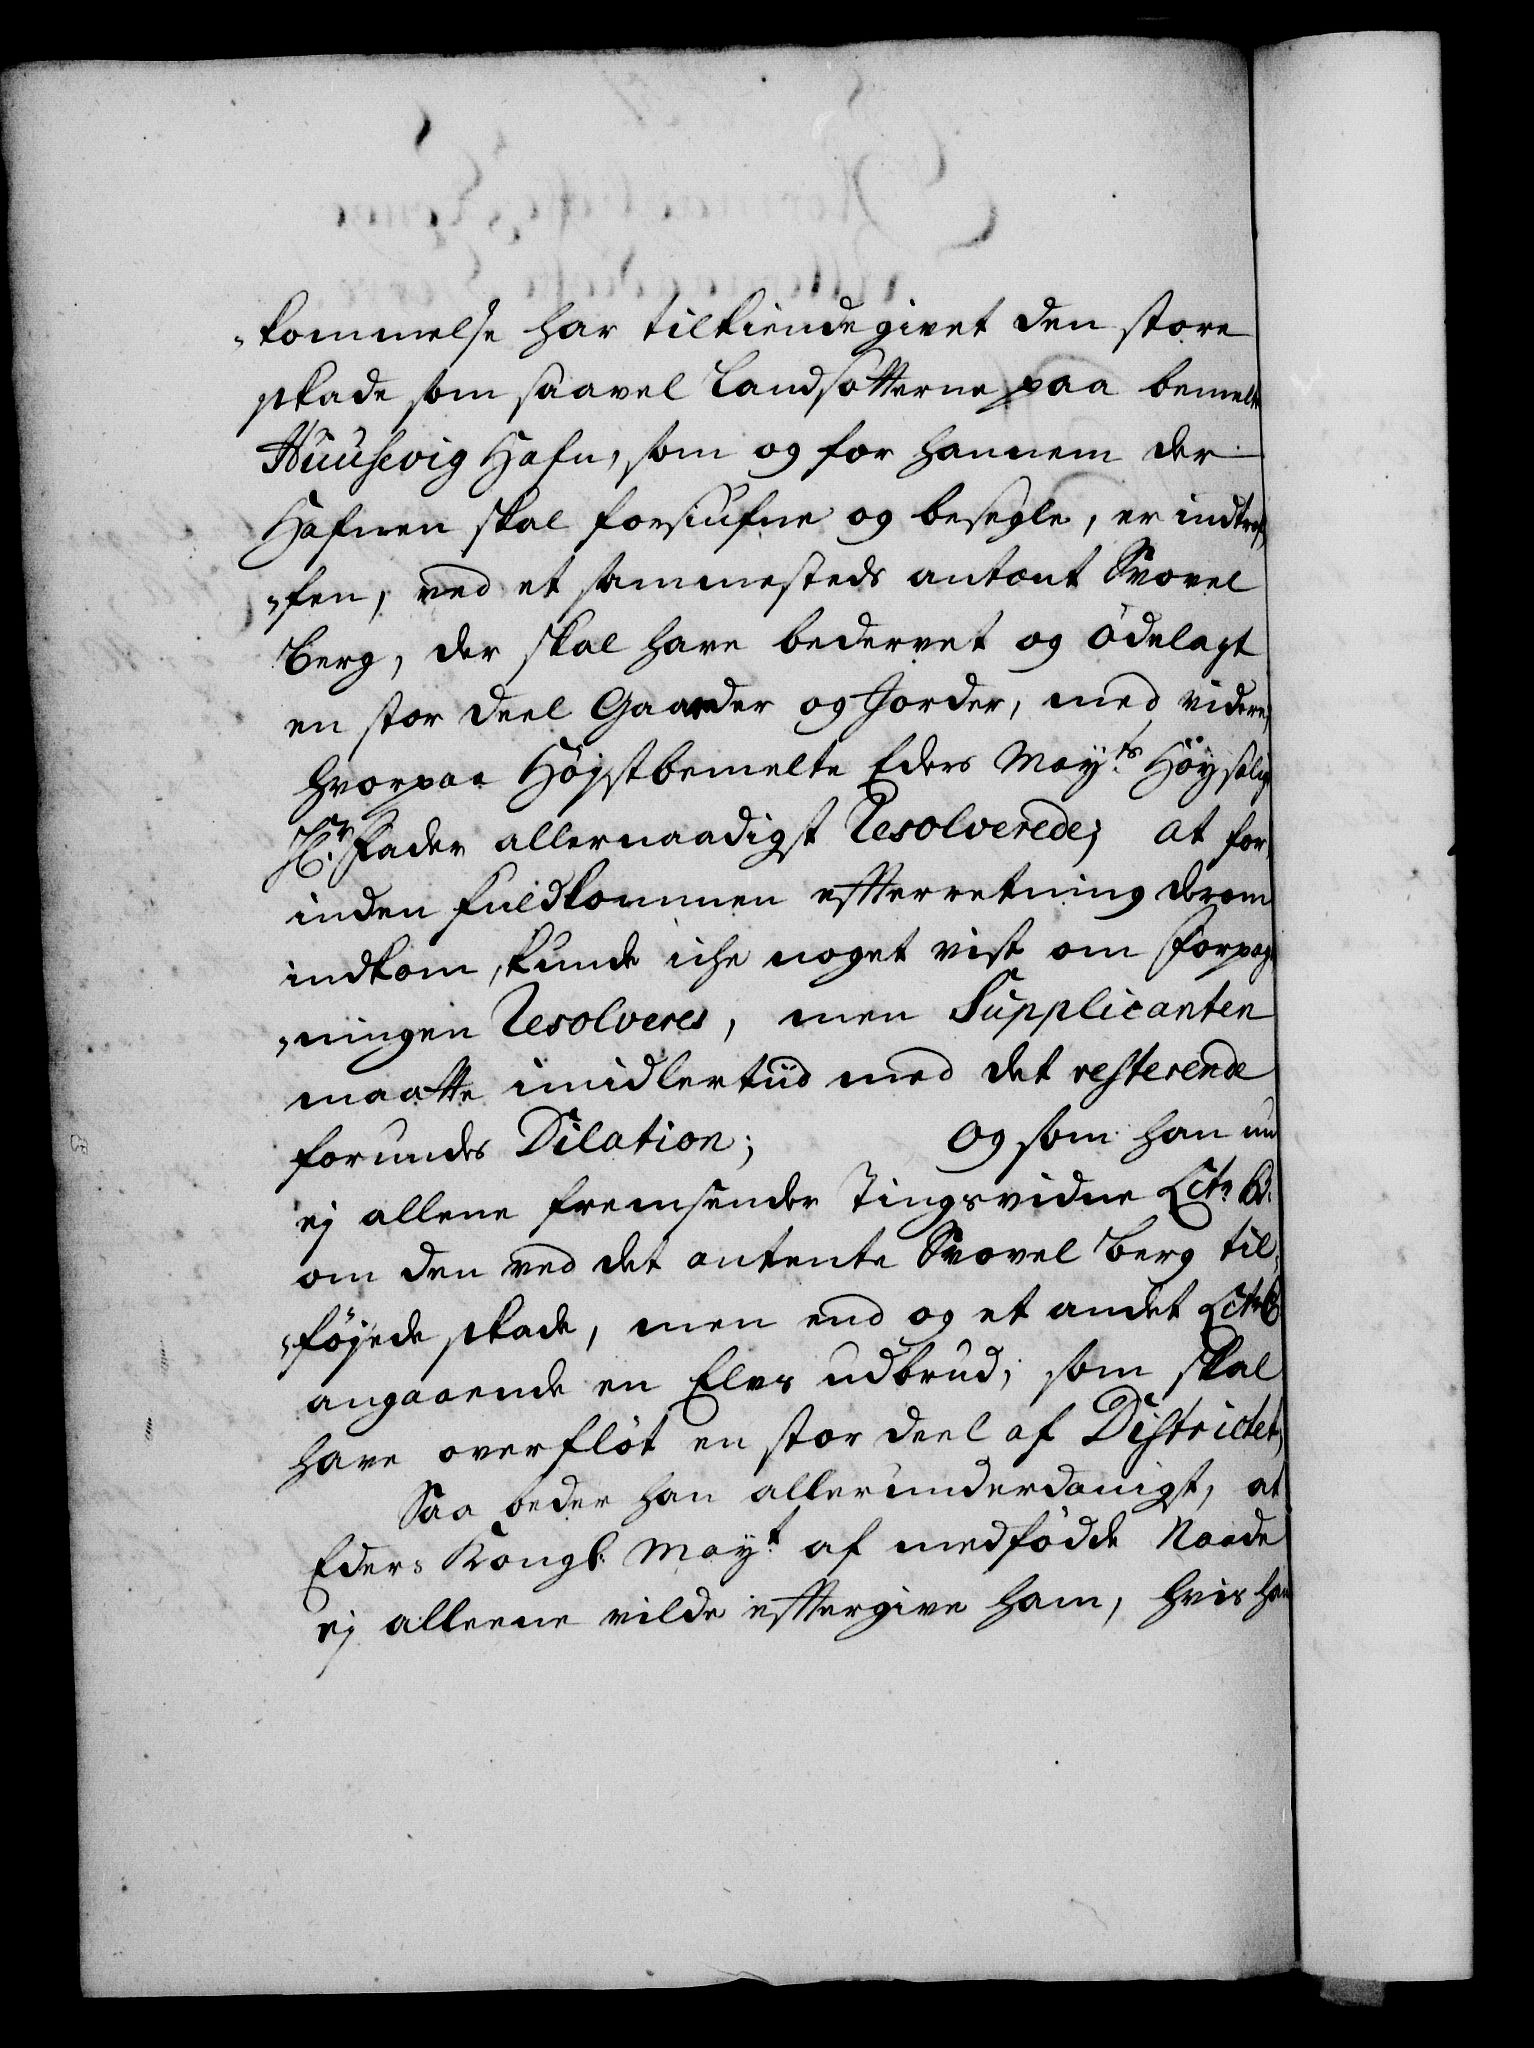 -kommelse har tilkiendegivet den store
skade som saavel Landsötterne paa bemelte
Huusevig Hafn, som og for hannem der
Hafnen skal forsiufne og besegle, er indtref-
-fen, ved et sammesteds antent Svovel
Berg, der skal have bedervet og ödelagt
en stor deel Gaarder og Jorder, med videre,
hvorpaa Höystbemelte Eders Mayts Höysalig
Hr. Fader allernaadigst Resolverede; at for-
inden fuldkommen efterretning derom
indkom, kunde iche noget vist om Forpag-
-ningen Resolveres, men Supplicanten
maatte imidlertiid med det resterende
forundes Dilation; Og som han nu
ej allene fremsender Tingsvidne Litr B.
om den ved det antente Svovel Berg til-
-föyede skade, men end og et andet Litr C
angaaende en Elvs udbrud, som skal
have overflöt en stor deel af Districtet,
Saa beder han allerunderdanigst, at
Eders Kongl: Mayt af medfödde Naade
ej alleene vilde eftergive ham, hvis han